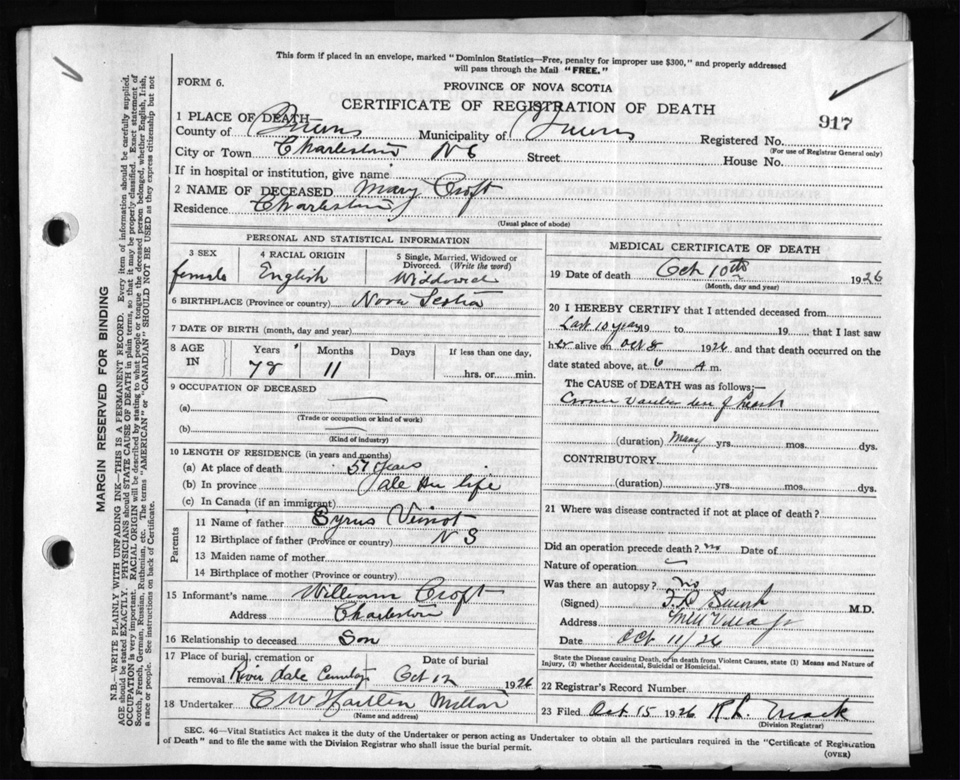 This form if placed in an envelope, marked "Dominion Statistics—Free, penalty for improper use $300," and properly addressed
will pass through the Mail "FREE."
FORM 6.
PROVINCE OF NOVA SCOTIA
CERTIFICATE OF REGISTRATION OF DEATH
917
1 PLACE OF DEATH
County of Queens Municipality of Queens Registered No.
(For use of Registrar General only)
City or Town Charleston Street House No.
If in hospital or institution, give name
2 NAME OF DECEASED Mary Croft
Residence Charleston
(Usual place of abode)
PERSONAL AND STATISTICAL INFORMATION
3 SEX
female
4 RACIAL ORIGIN
English
5 Single, Married, Widowed or
Divorced. (Write the word)
Widdowed
6 BIRTHPLACE (Province or country) Nova Scotia
7 DATE OF BIRTH (month, day and year)
8 AGE
IN
Years Months Days If less than one day,
78 11 hrs. or min.
9 OCCUPATION OF DECEASED
(a)
(Trade or occupation or kind of work)
(b)
(Kind of industry)
10 LENGTH OF RESIDENCE (in years and months)
(a) At place of death 57 years
(b) In province life
(c) In Canada (if an immigrant)
Parents
11 Name of father Syrus Veinot
12 Birthplace of father (Province or country) N S
13 Maiden name of mother
14 Birthplace of mother (Province or country)
15 Informant's name William Croft
Address Charleston
16 Relationship to deceased Son
17 Place of burial, cremation or Date of burial
removal River dale Cemetery Oct 12 1926
18 Undertaker C W
(Name and address)
MEDICAL CERTIFICATE OF DEATH
19 Date of death Oct 10th 1926
(Month, day and year)
20 I HEREBY CERTIFY that I attended deceased from
Last 10 years 19 to 19 that I last saw
her alive on Oct 8 1926 and that death occurred on the
date stated above, at 6 A m.
The CAUSE of DEATH was as follows;—
of heart
(duration) Many yrs. mos. dys.
CONTRIBUTORY.
(duration) yrs. mos. dys.
21 Where was disease contracted if not at place of death?
Did an operation precede death? no Date of
Nature of operation
Was there an autopsy? no
(Signed) M.D.
Address Mill Village
Date Oct 11/26
State the Disease causing Death, or in death from Violent Causes, state (1) Means and Nature of
Injury, (2) whether Accidental, Suicidal or Homicidal.
22 Registrar's Record Number
23 Filed Oct 15 1926 R. L. Mack
(Division Registrar)
SEC. 46—Vital Statistics Act makes it the duty of the Undertaker or person acting as Undertaker to obtain all the particulars required in the "Certificate of Registration
of Death" and to file the same with the Division Registrar who shall issue the burial permit.
(OVER)
MARGIN RESERVED FOR BINDING
N.B.—WRITE PLAINLY WITH UNFADING INK—THIS IS A PERMANENT RECORD. Every item of information should be carefully supplied.
AGE should be stated EXACTLY. PHYSICIANS should STATE CAUSE OF DEATH in plain terms, so that it may be properly classified. Exact statement of
OCCUPATION is very important. RACIAL ORIGIN will be described by stating to what people or tongue the deceased person belonged, whether English, Irish,
Scotch, French, German, Russian, Ruthenian, etc. The terms "AMERICAN" or "CANADIAN" SHOULD NOT BE USED as they express citizenship but not
a race or people. See instructions on back of Certificate.